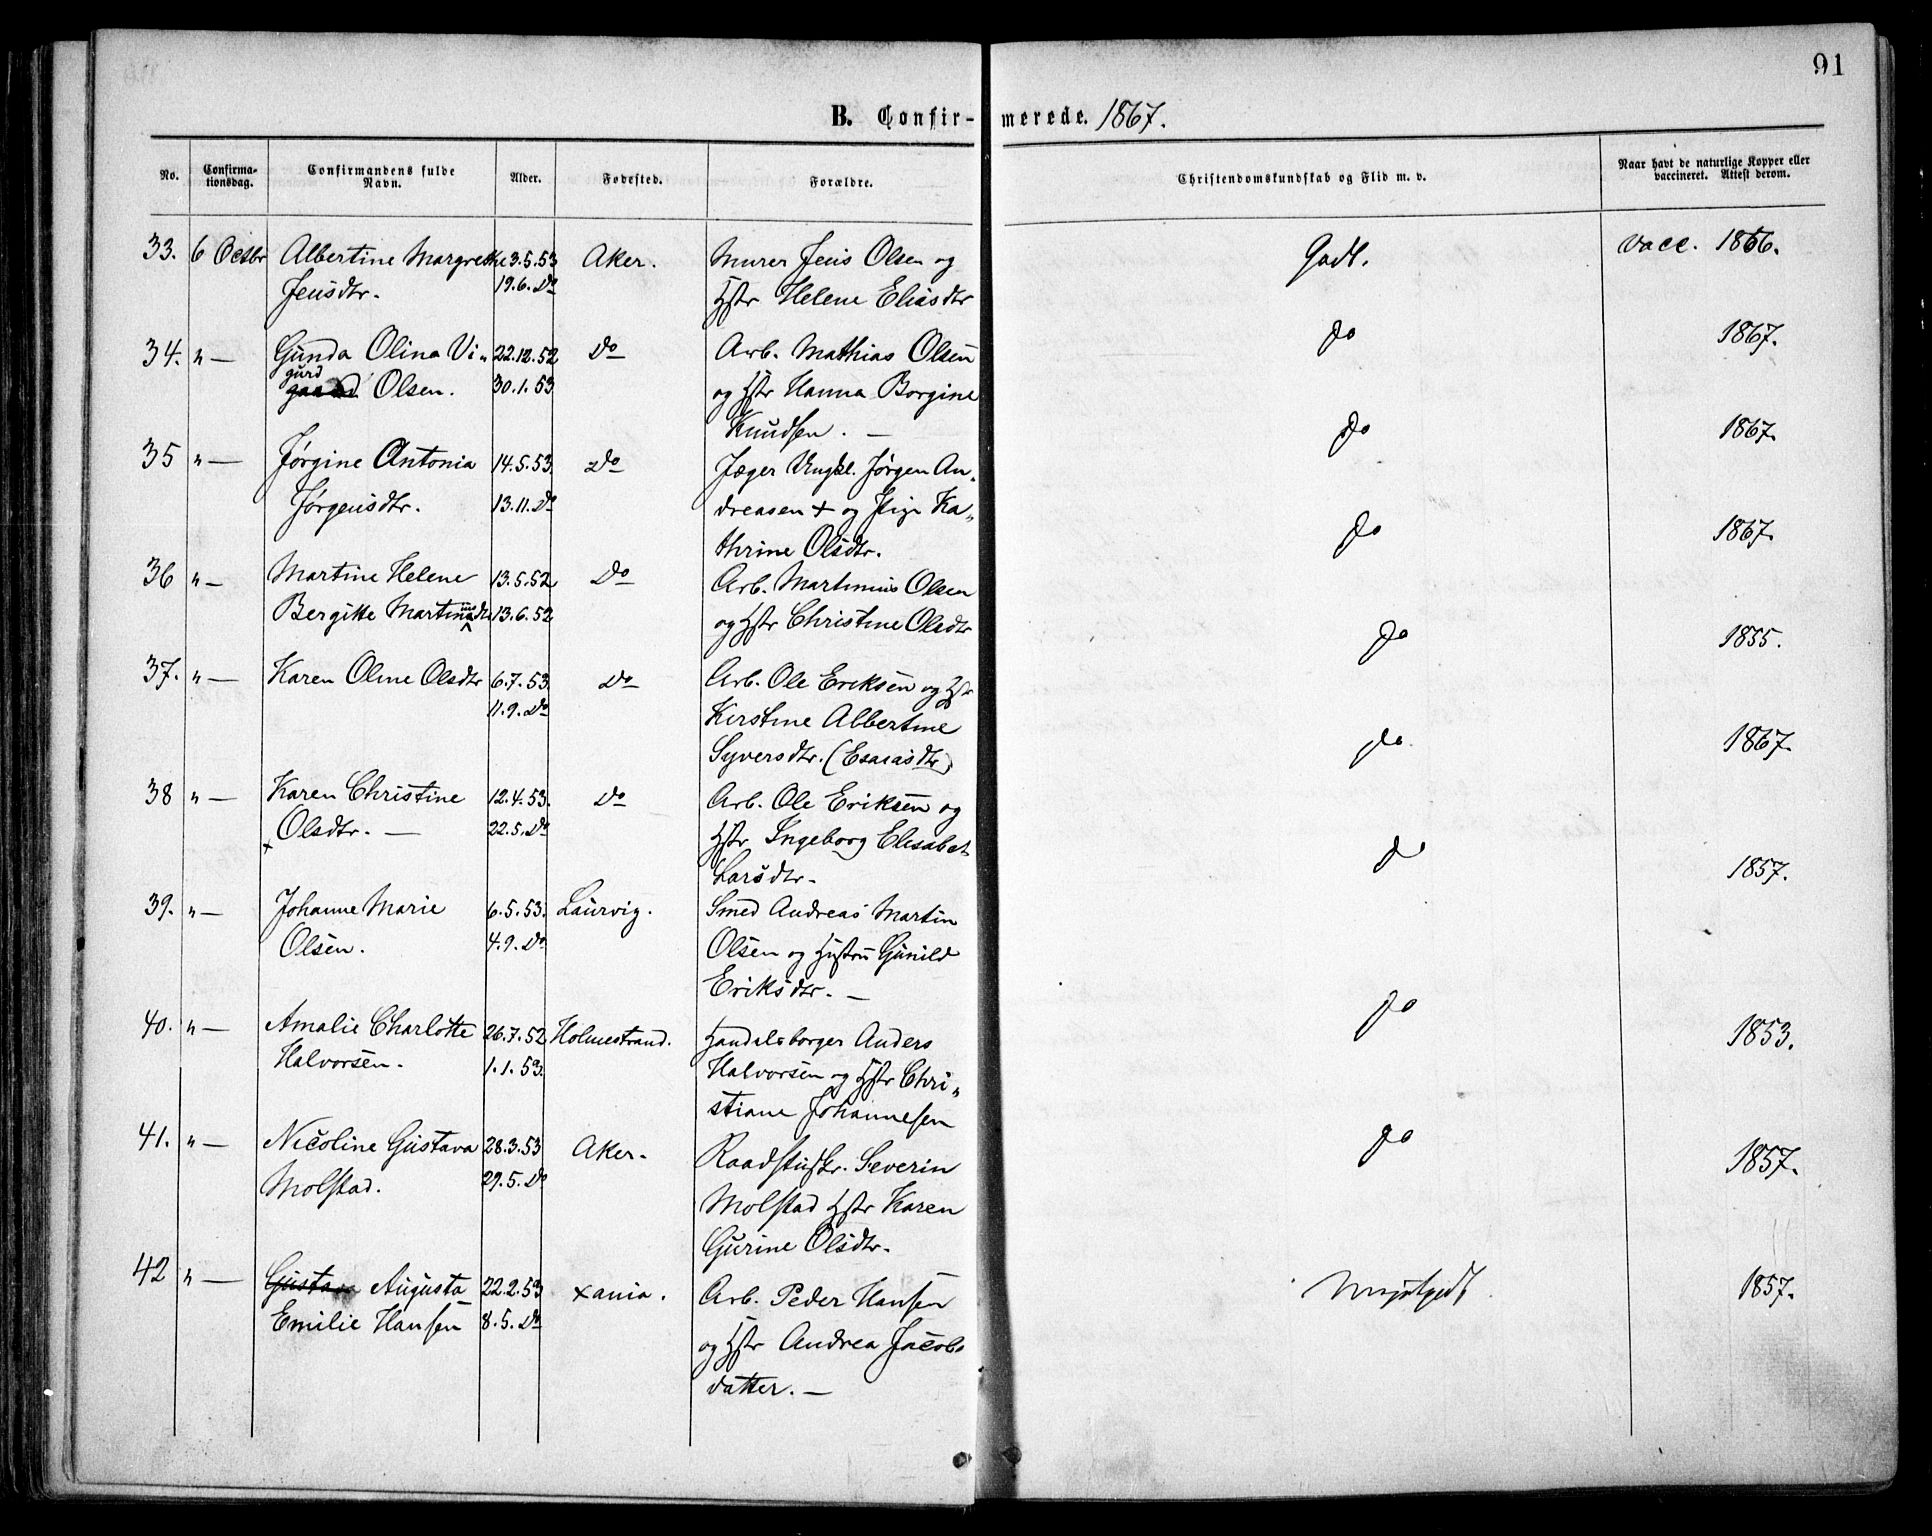 91
B. Confirmerede. 1867.
No. Confirmationsdag. Confirmandens fulde Navn. Alder. Fødested. Forældre. Christendomskundskab og Flid m. v. Naar havt de naturlige Kopper eller vaccineret. Attest derom.
33. 6 Octbr Albertine Margrethe 3.5.53 Aker. Murer Jens Olsen og Godt. Vacc. 1866.
Jensdtr. 19.6. Do Hstr Helene Eliasdtr
34. " — Gunda Olina Vi- 22.12.52 Do Arb. Mathias Olsen do 1867.
gurd Olsen. 30.1.53 og Hstr Hanna Borgine
Knudsen. —
35 " — Jørgine Antonia 14.5.53 Do Jæger Ungkl. Jørgen An- do 1867.
Jørgensdtr. 13.11. Do dreasen + og Pige Ka-
thrine Olsdtr.
36 " — Martine Helene 13.5.52 Do Arb. Martinius Olsen do 1867.
Bergitte Martiniusdtr 13.6.52 og Hstr Christine Olsdtr
37. " — Karen Oline Olsdtr 6.7.53 Do Arb. Ole Eriksen og Hstr do 1855.
11.9. Do Kirstine Albertine
Syversdtr. (Esaiasdtr)
38 " — Karen Christine 12.4.53. Do Arb. Ole Eriksen og do 1867.
+ Olsdtr. — 22.5. Do Hstr Ingeborg Elisabet
Larsdtr.
39. " — Johanne Marie 6.5.53. Laurvig. Smed Andreas Martin do 1857.
Olsen. 4.9. Do Olsen og Hustru Gunild
Eriksdtr. —
40. " — Amalie Charlotte 26.7.52 Holmestrand. Handelsborger Anders do 1853.
Halvorsen. 1.1.53. Halvorsen og Hstr Chri-
stiane Johannesen
41. " — Nicoline Gustava 28.3.53 Aker. Raadstuskr. Severin do 1857.
Molstad. 29.5. Do Molstad Hstr Karen
Gurine Olsdtr.
42 " — Gustava Augusta 22.2.53 Xania. Arb. Peder Hansen Meget godt 1857.
Emilie Hansen 8.5. Do og Hstr Andrea Jacobs
datter. —